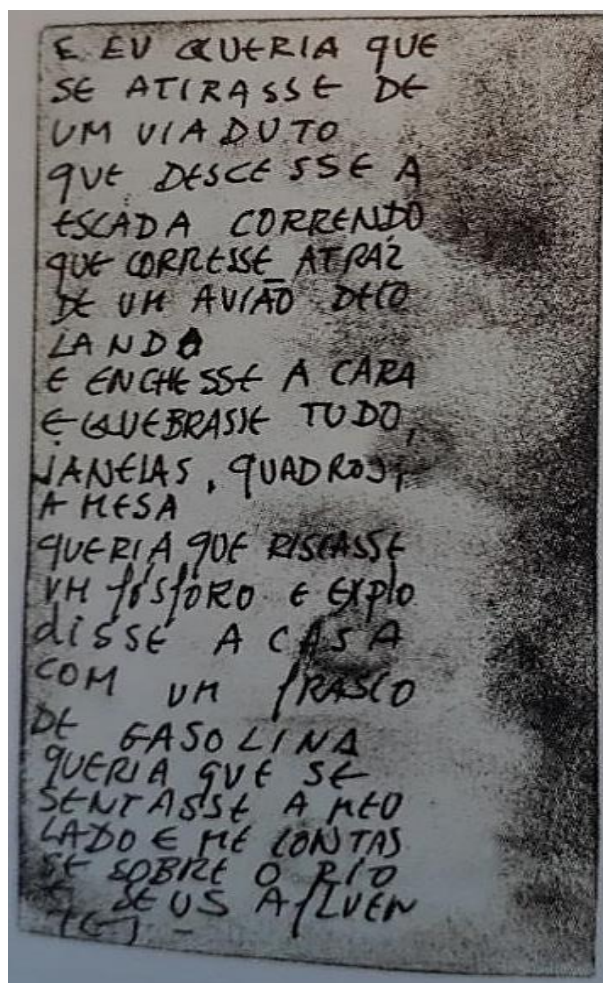 E EU QUERIA QUE
SE ATIRASSE DE
UM VIADUTO
QUE DESCESSE A
ESCADA CORRENDO
QUE CORRESSE ATRAZ
DE UM AVIÃO DECO
LANDO
E ENCHESSE A CARA
E QUEBRASSE TUDO,
JANELAS, QUADROS,
A MESA
QUERIA QUE RISCASSE
UM fósforo E EXplO
diSSE A CASA
COM UM fRASCO
DE GASOLINA
QUERIA QUE SE
SENTASSE A MEU
LADO E ME CONTAS
SE SOBRE O RIO
E SEUS AfLUEN
TES